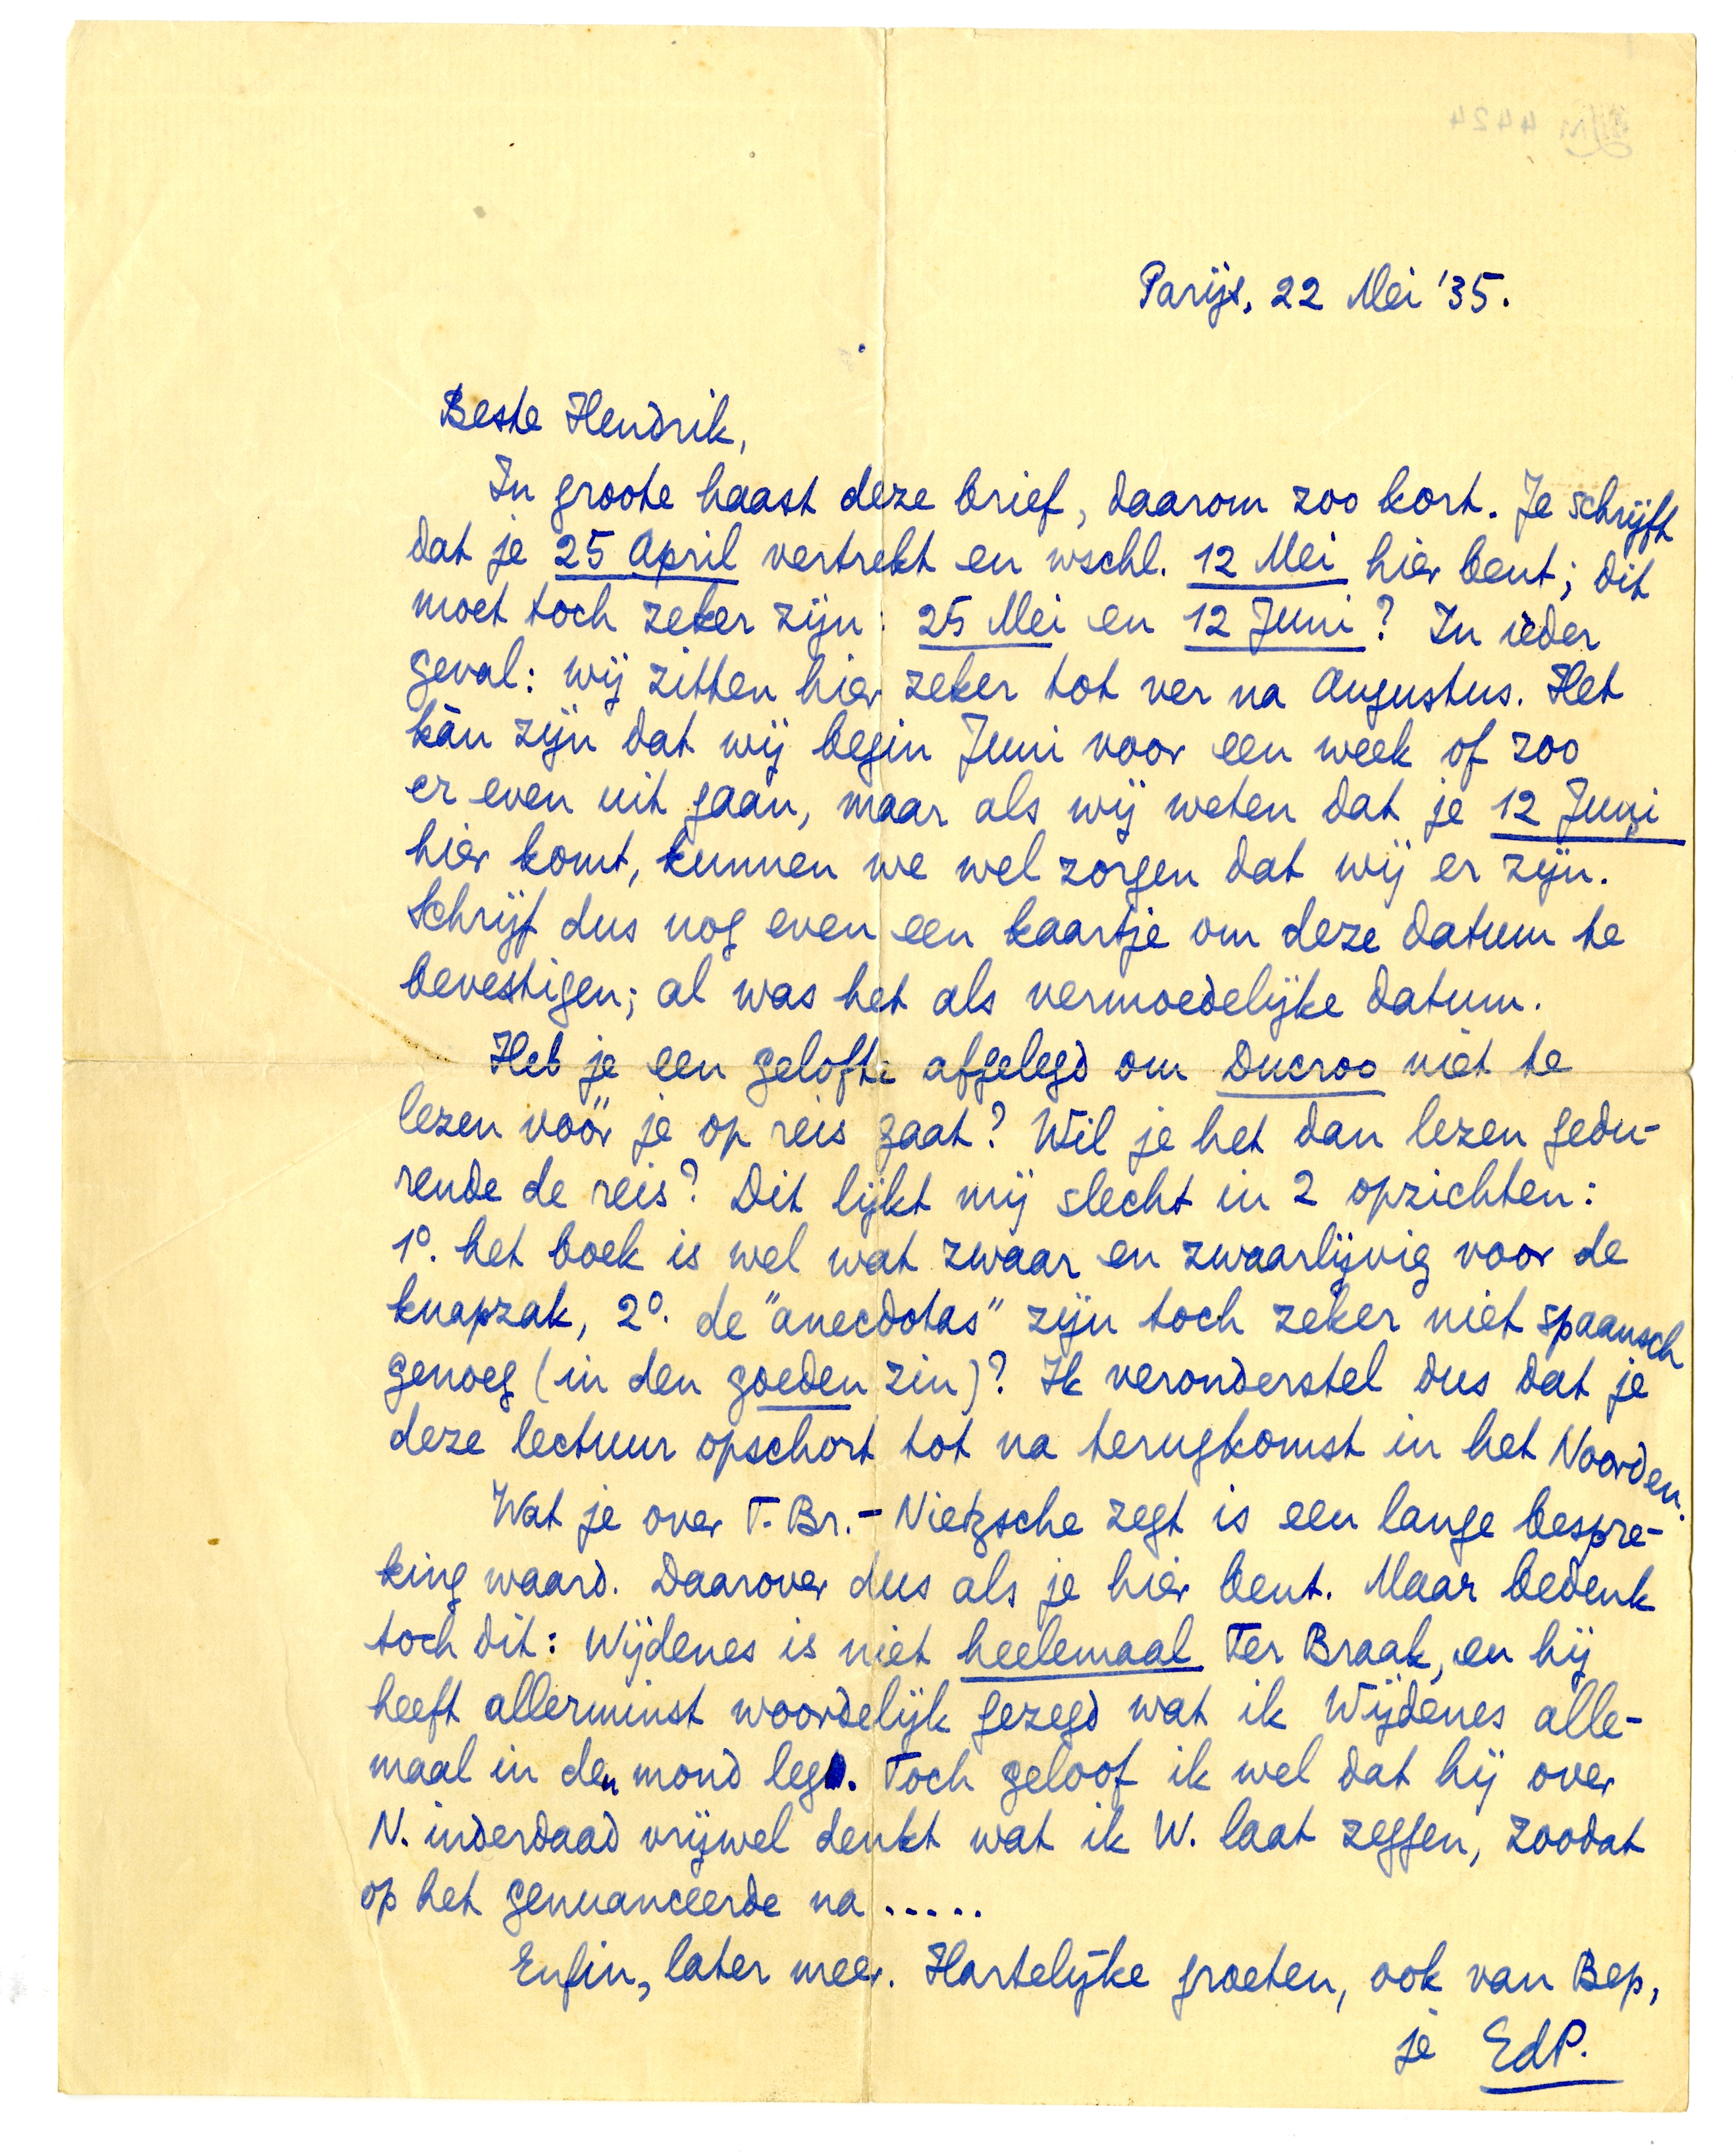 Parijs, 22 Mei '35.
Beste Hendrik,
In groote haast deze brief, daarom zoo kort. Je schrijft
dat je 25 April vertrekt en wschl. 12 Mei hier bent; dit
moet toch zeker zijn: 25 Mei en 12 Juni? In ieder
geval: wij zitten hier zeker tot ver na Augustus. Het
kàn zijn dat wij begin Juni voor een week of zoo
er even uit gaan, maar als wij weten dat je 12 Juni
hier komt, kunnen we wel zorgen dat wij er zijn.
Schrijf dus nog even een kaartje om deze datum te
bevestigen; al was het als vermoedelijke datum.
Heb je een gelofte afgelegd om Ducroo niet te
lezen vóór je op reis gaat? Wil je het dan lezen gedu-
rende de reis? Dit lijkt mij slecht in 2 opzichten:
1º. het boek is wel wat zwaar en zwaarlijvig voor de
knapzak, 2º. de "anecdotas" zijn toch zeker niet spaansch
genoeg (in den goeden zin)? Ik veronderstel dus dat je
deze lectuur opschort tot na terugkomst in het Noorden.
Wat je over T. Br.- Nietzsche zegt is een lange bespre-
king waard. Daarover dus als je hier bent. Maar bedenk
toch dit: Wijdenes is niet heelemaal Ter Braak, en hij
heeft allerminst woordelijk gezegd wat ik Wijdenes alle-
maal in den mond leg. Toch geloof ik wel dat hij over
N. inderdaad vrijwel denkt wat ik W. laat zeggen, zoodat
op het genuanceerde na .....
Enfin, later meer. Hartelijke groeten, ook van Bep,
je EdP.